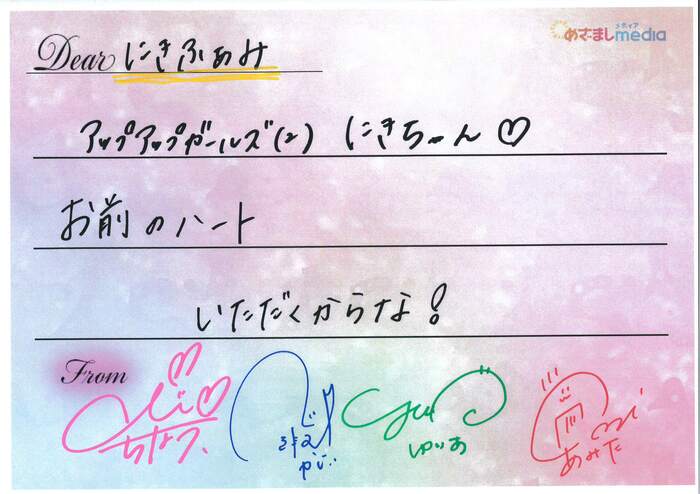 Dear にきふぁみ
めざましmedia
メディア
アップアップガールズ(2) にきちゃーん♡
お前のハート
いただくからな!
From
ちなつ
ゆいあ
あみた